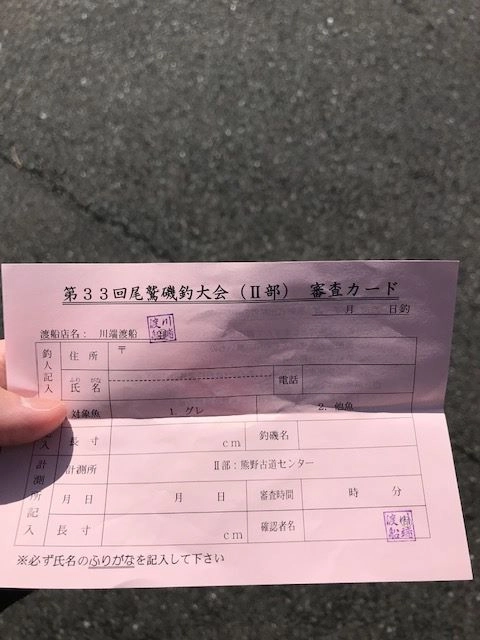 第３３回尾鷲磯釣大会（Ⅱ部） 審査カード
月 日釣
渡船店名： 川端渡船 川端渡船
釣人記入 住所 〒
ふりがな
氏名 電話
対象魚 1. グレ 2. 他魚
入 長寸 cm 釣磯名
計測所記入 計測所 Ⅱ部：熊野古道センター
月日 月 日 審査時間 時 分
長寸 cm 確認者名 川端渡船
※必ず氏名のふりがなを記入して下さい